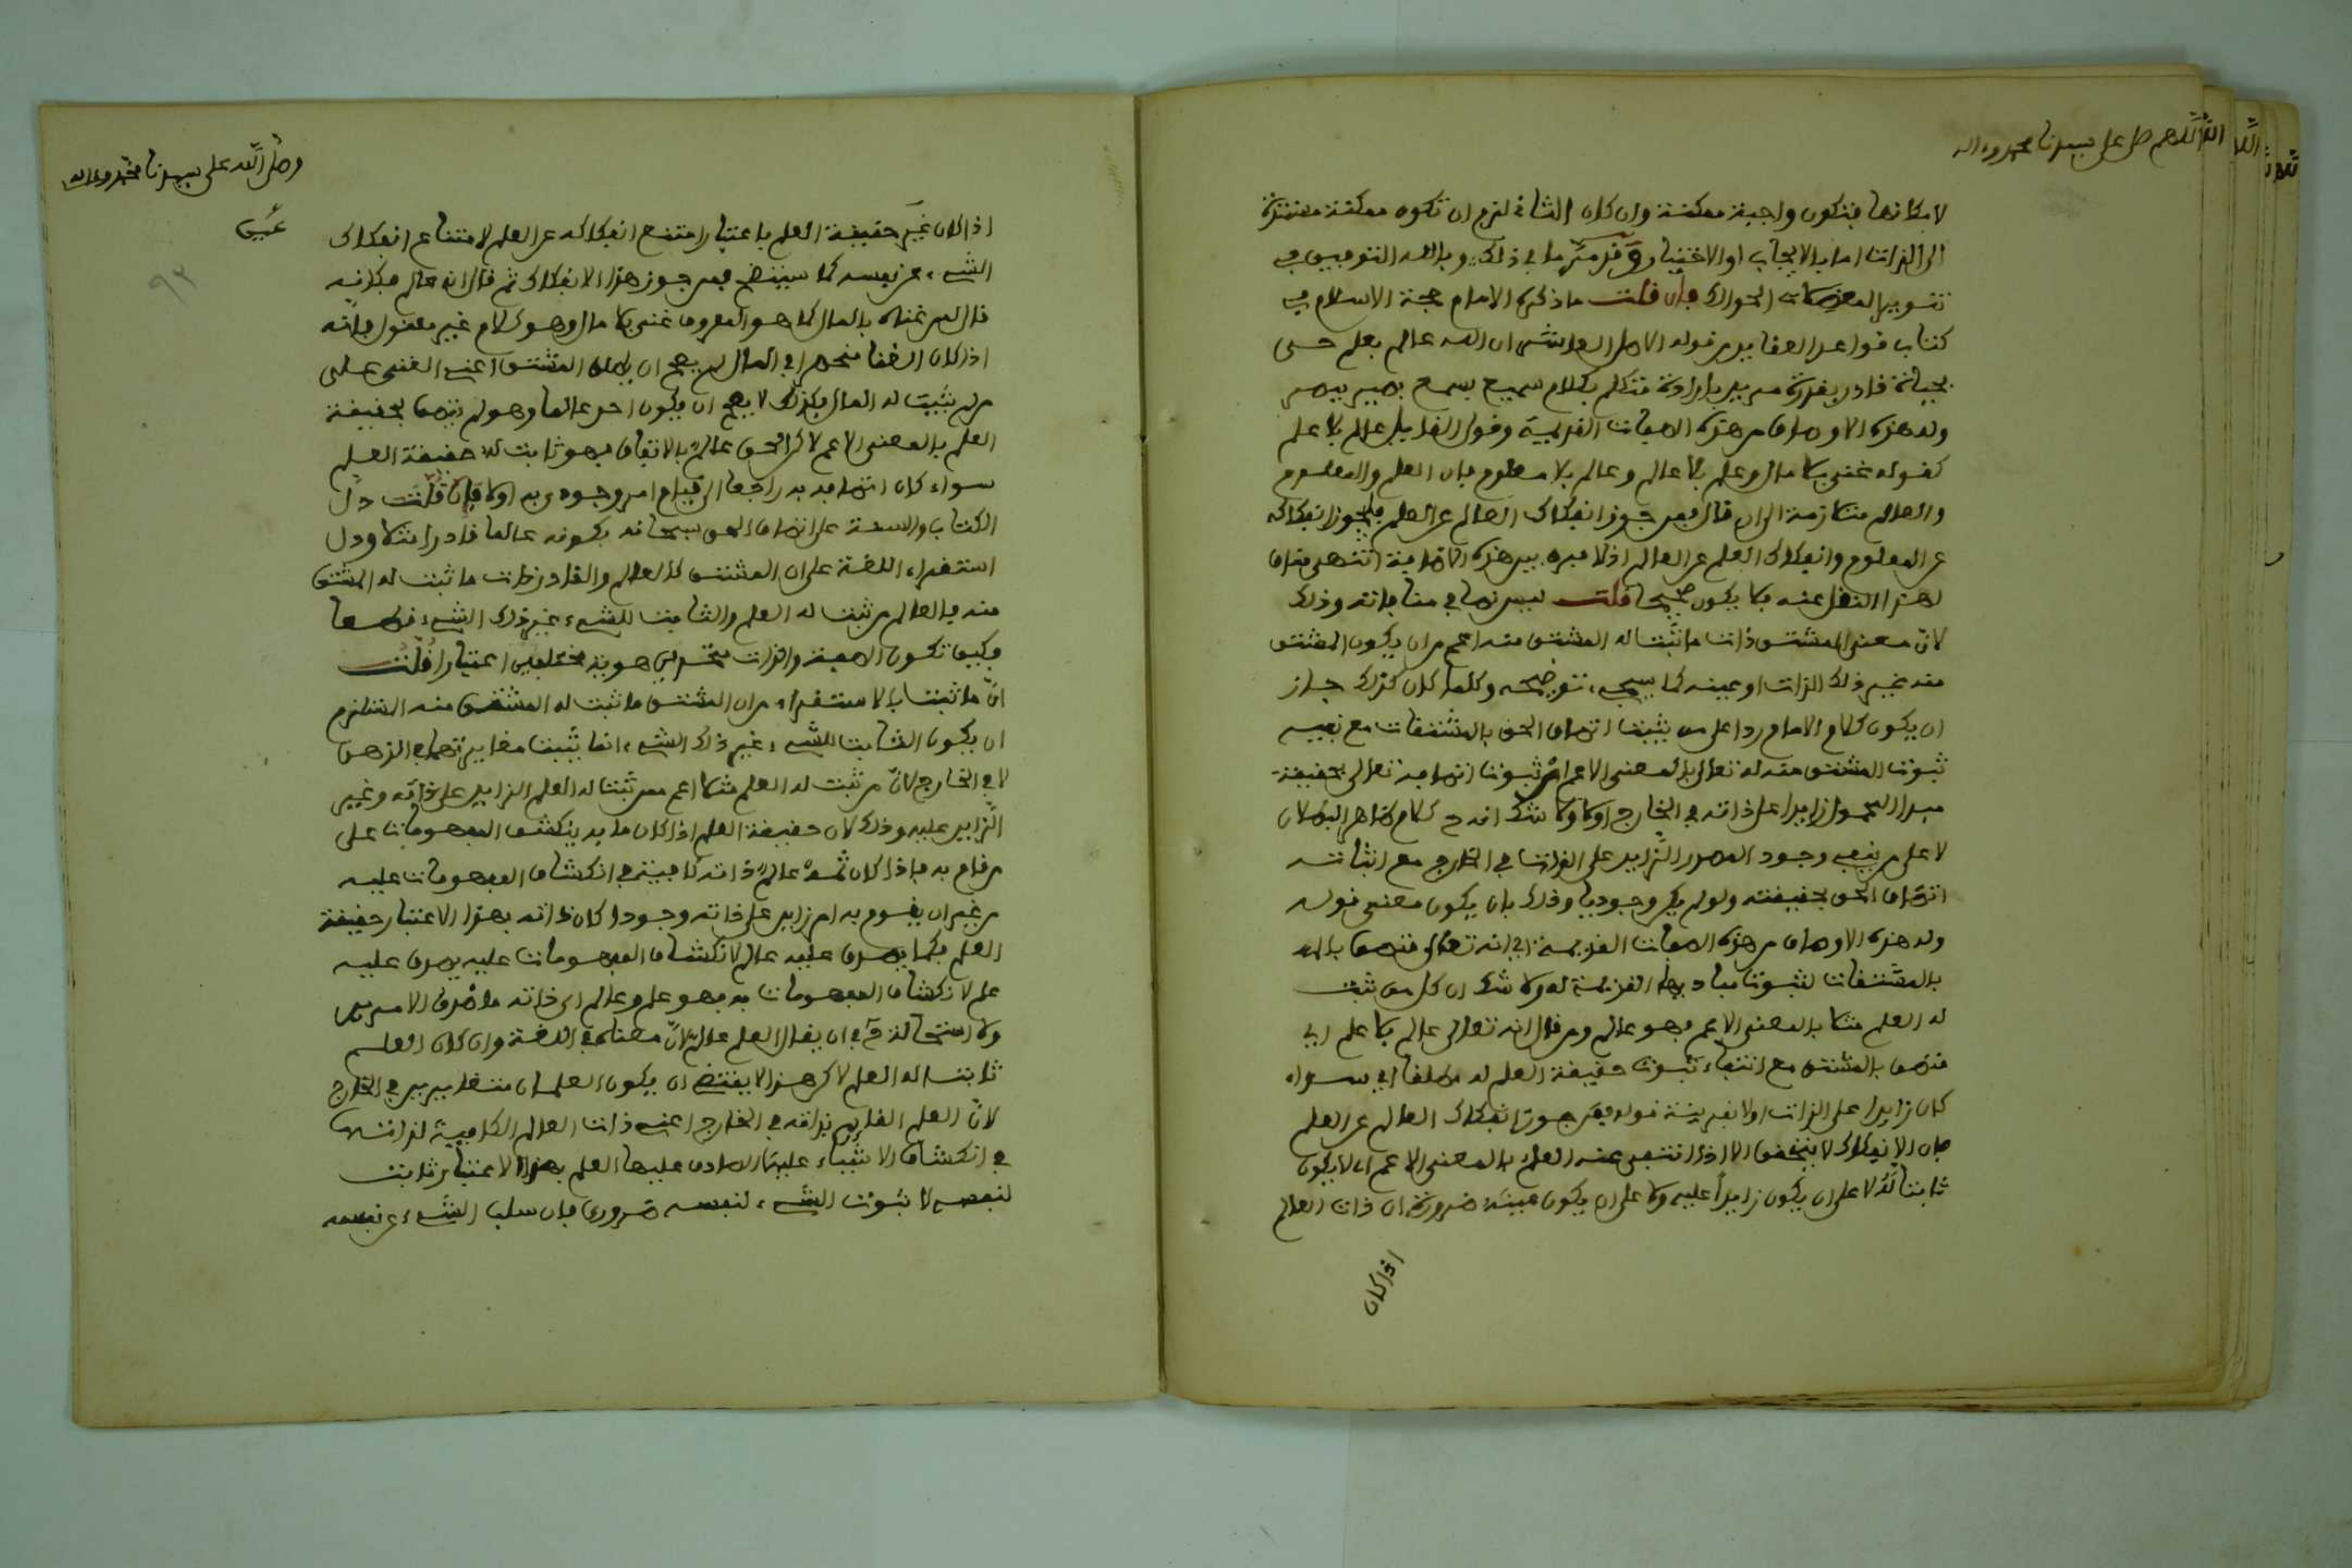 اللهم صل على سيدنا محمد وءاله
لامكانها فتكون واجبة ممكنة وان كان الثانى لزم ان تكون ممكنة مفتقرة
الى الذات اما بالايجاب او الاختيار وقد مر ما فى ذلك وبالله التوفيق فى
تنوير المعضلات الحوالك فان قلت ما ذكره الامام حجة الاسلام فى
كتاب قواعد العقايد من قوله الاصل العاشر ان الله عالم بعلم حى
بحياة قادر بقدرة مريد بارادة متكلم بكلام سميع بسمع بصير ببصر
وله هذه الاوصاف من هذه الصفات القديمة وقول القايل عالم بلا علم
كقوله غنى بلا مال وعلم بلا عالم وعالم بلا معلوم فان العلم والمعلوم
والعالم متلازمة الى ان قال فمن جوز انفكاك العالم عن العلم فليجوز انفكاكه
عن المعلوم وانفكاك العلم عن العالم اذ لا فرق بين هذه الاضافة انتهى مناف
لهذا النقل عنه فلا يكون صحيحا قلت ليس نصا فى منافاته وذلك
لان معنى المشتق ذات ما ثبت له المشتق منه اعم من ان يكون المشتق
منه غير ذلك الذات او عينه كما سيجىء توضيحه وكلما كان كذلك جاز
ان يكون كلام الامام ردا على من يثبت اتصاف الحق بالمشتقات مع نفيه
ثبوت المشتق منه له تعالى بالمعنى الاعم اى ثبوت اتصافه تعالى بحقيقة
مبدا المحمول زايدا على ذاته فى الخارج اولا ولا شك انه ح كلام ظاهر البطلان
لا على من ينفى وجود المصدر الزايد على الذات فى الخارج مع اثباته
اتصاف الحق بحقيقته ولو لم يكن وجوديا وذلك بان يكون معنى قوله
وله هذه الاوصاف من هذه الصفات القديمة اى انه تعالى متصف بالله
بالمشتقات لثبوت مباديها القديمة له ولا شك ان كل من ثبت
له العلم مثلا بالمعنى الاعم فهو عالم ومن قال انه تعالى عالم بلا علم اى
متصف بالمشتق مع انتفاء ثبوت حقيقة العلم له مطلقا اى سواء
كان زايدا على الذات اولا بقرينة قوله فمن جوز انفكاك العالم عن العلم
فان الانفكاك لا يتحقق الا اذا انتفى عنه العلم بالمعنى الاعم اى لا يكون
ثابتا له لا على ان يكون زايدا عليه ولا على ان يكون عينه ضرورة ان ذات العالم
اذا كان
وصلى الله على سيدنا محمد وءاله
اذا كان غير حقيقة العلم باعتبار امتنع انفكاكه عن العلم لامتناع انفكاك
الشىء عن نفسه كما سيتضح فمن جوز هذا الانفكاك ثم قال انه عالم فكانه
قال ليس غناه بالمال كما هو المعروف غنى بلا مال وهو كلام غير معقول فانه
اذا كان الغنا منحصرا فى المال لم يصح ان المشتق اعنى الغنى على
من لم يثبت له المال فكذلك لا يصح ان يكون احد عالما وهو لم يتصف بحقيقة
العلم بالمعنى الاعم لاكن الحق عالم بالاتفاق فهو ثابت له حقيقة العلم
سواء كان اتصافه به راجعا الى قيام امر وجودى به اولا فان قلت دل
الكتاب والسنة على اتصاف الحق سبحانه بكونه عالما قادرا مثلا ودل
استقراء اللغة على ان المشتق كالعالم والقادر ذات ما ثبت له المشتق
منه فالعالم من ثبت له العلم والثابت للشىء غير ذلك الشىء قطعا
فكيف تكون الصفة والذات متحدين هوية مختلفين اعتبارا قلت
ان ما ثبت بالاستقراء من ان المشتق ما ثبت له المشتق منه المستلزم
ان يكون الثابت للشىء غير ذلك الشىء انما يثبت مغايرتهما فى الذهن
لا فى الخارج لان من ثبت له العلم مثلا اعم ممن ثبت له العلم الزايد على ذاته وغير
الزايد عليه وذلك لان حقيقة العلم اذا كان ما به ينكشف المفهومات على
من قام به فاذا كان ثمة عالم ذاته كافية فى انكشاف المفهومات عليه
من غير ان يقوم به امر زايد على ذاته وجودا كان ذاته بهذا الاعتبار حقيقة
العلم فكما يصدق عليه عالم لانكشاف المفهومات عليه يصدق عليه
علم لانكشاف المفهومات به فهو علم وعالم اى ذاته ما صدق الامرين
ولا استحالة ح فى ان يقال العلم عالم لان معناه فى اللغة وان كان العلم
ثابتا له العلم لاكن هذا لا يقتضى ان يكون العلمان متغايرين فى الخارج
لان العلم القايم بذاته فى الخارج اعنى ذات العالم الكافية لذاتها
فى انكشاف الاشياء عليها الصادق عليها العلم بهذا الاعتبار ثابت
لنفسه لا ثبوت الشىء لنفسه ضرورى فان سلب الشىء عن نفسه
٩٣